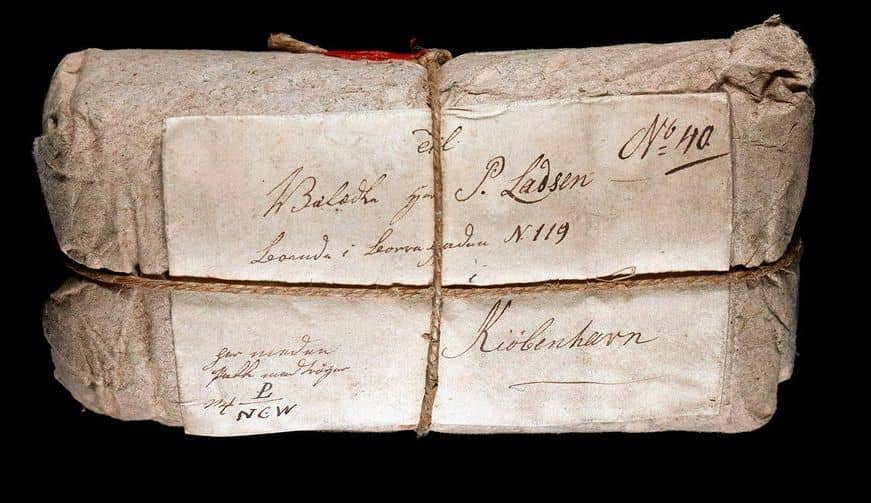 Til
No 40
Velædle Hr P. Ladsen
boende i Borregaden N 119
i
Kiöbenhavn
her meden
Pakke med bøger
P
NCW